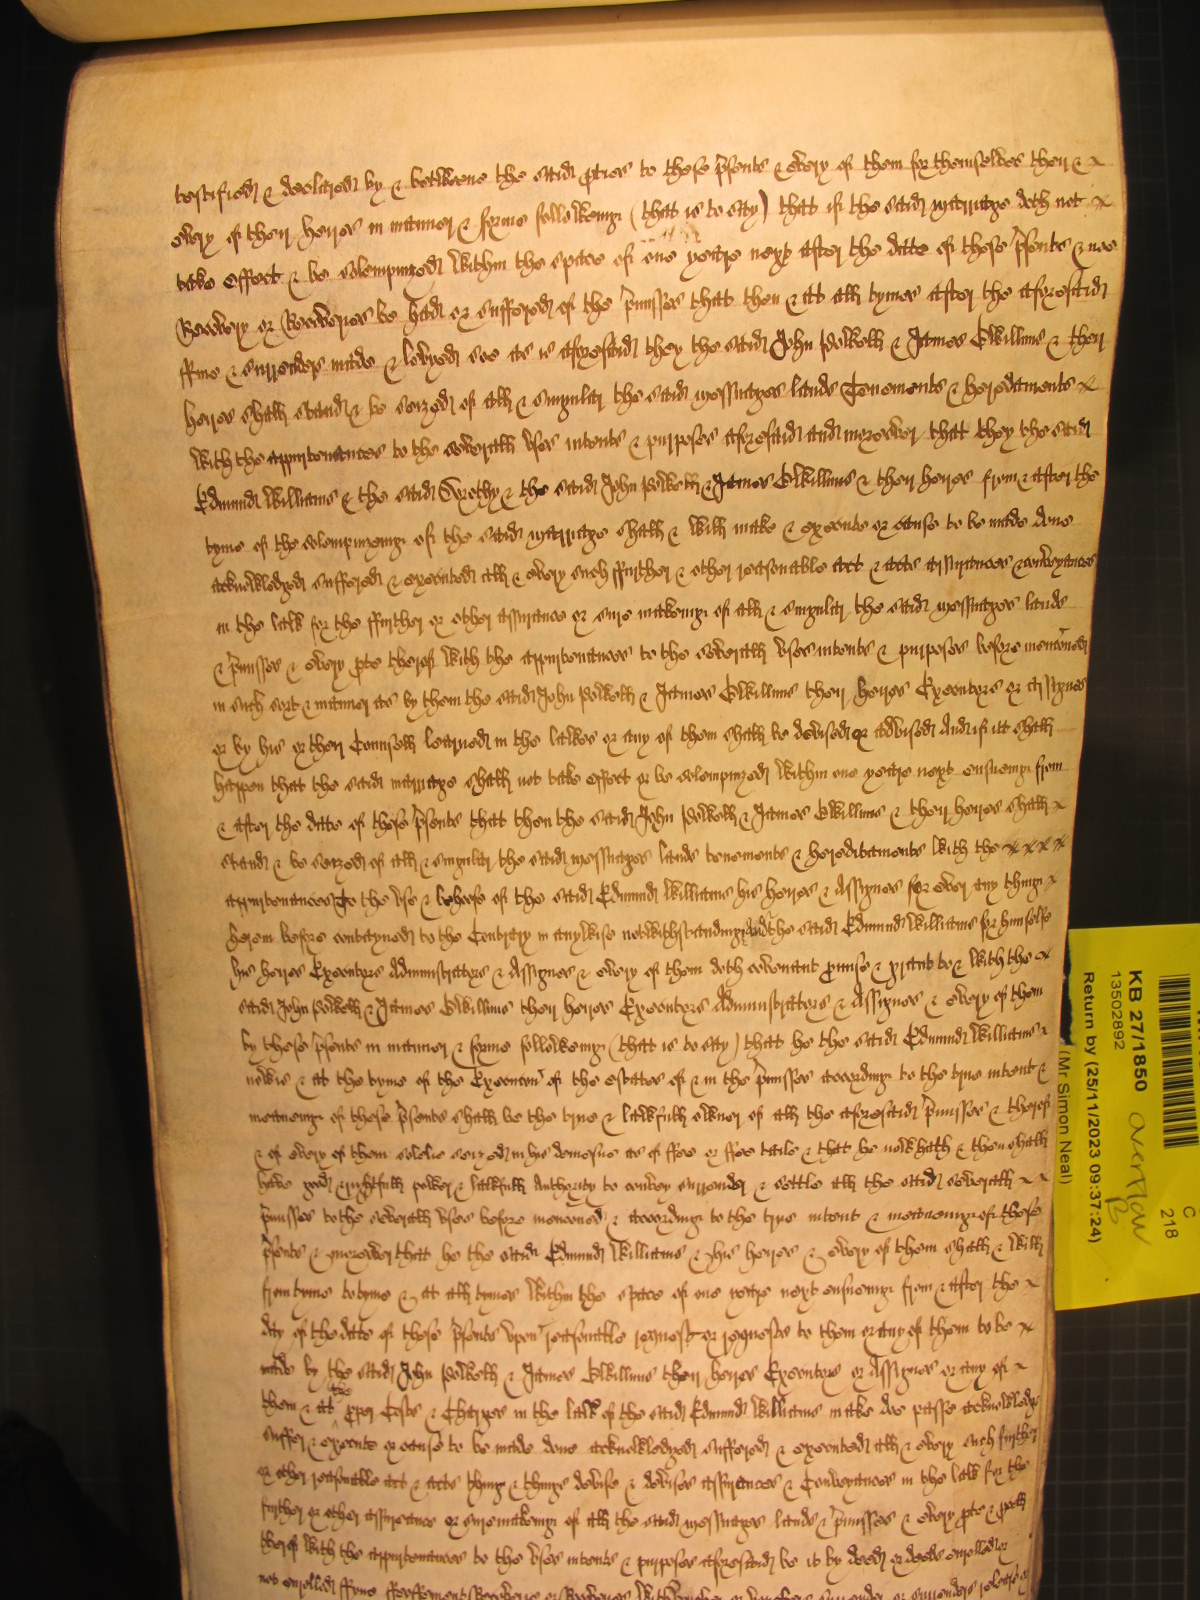 testified & declared by & betweene the said pties to these psents & every of them for themselves their &
every of their heires in manner & forme followeing (that is to say) that if the said marriage doth not
take effect & be solempnized within the space of one yeare next after the date of these psents & noe
Recovery or Recoveries be had or suffered of the pmisses that then & att all tymes after the aforesaid
ffine & surrender made & levyed soe as is aforesaid they the said John Powell & James Williams & their
heires shall stand & be seized of all & singuler the said messuages lands Tenements & hereditaments
with the appurtenances to the severall vses intents & purposes aforesaid and moreover that they the said
Edmund Williams & the said & the said John Powell & James Williams & their heires from & after the
tyme of the solempnizeing of the said marriage shall & will make & execute or cause to be made done
acknowledged suffered & executed all & every such ffurther & other reasonable act & acts assurances & conveyances
in the lawe for the ffurther or other assurance or sure makeing of all & singuler the said messuages lands
& pmisses & every pte thereof with the appurtenances to the severall vses intents & purposes before menconed
in such sort & manner as by them the said John Powell & James Williams their heires Executors or assignes
or by his or their Councell learned in the lawes or any of them shall be devised or advised And if itt shall
happen that the said marriage shall not take effect or be solempnized within one yeare next ensueing from
& after the date of these psents that then the said John Powell & James Williams & their heires shall
stand & be seized of all & singuler the said messuages lands tenements & hereditaments with the
appurtenances To the vse & behoofe of the said Edmund Williams his heires & Assignes for ever any thing
herein before contayned to the Contrary in anywise notwithstanding And the said Edmund Williams for himselfe
his heires Executors Administrators & Assignes & every of them doth covenant pmise & grant to & with the
said John Powell & James Williams their heires Executors Administrators & Assignes & every of them
by these psents in manner & forme followeing (that is to say) that he the said Edmund Williams
nowe is & att the tyme of the Execucon of the estates of & in the pmisses according to the true intent &
meaneing of these psents shall be the true & lawfull owner of all the aforesaid pmisses & thereof
& of every of them solelie seized in his demesne as of ffee or ffee taile & that he now hath & then shall
have good rightfull power & lawfull Authority to convey surrender & settle all the said severall
pmisses to the severall vses before menconed & according to the true intent & meaneing of these
psents & moreover that he the said Edmund Williams & his heires & every of them shall & will
from tyme to tyme & att all tymes within the space of one yeare next ensueing from & after the
day of the date of these psents vpon reasonable request or requests to them or any of them to be
made by the said John Powell & James Williams their heires Executors or Assignes or any of
them & att the pper Costs & Charges in the law of the said Edmund Williams make doe passe acknowledge
suffer & execute or cause to be made done acknowledged suffered & executed all & every such further
or other reasonable act & acts thing & things devise & devises assurances & Conveyances in the law for the
further or other assurance or sure makeing of all the said messuages lands & pmisses & every pte & pcell
thereof with the appurtenances to the vses intents & purposes aforesaid be it by deed or deeds enrolled or
not enrolled ffine ffeoffement Recoverie or Recoveries surrender or surrenders
KB 27/1850
13502892
Return by (25/11/2023 09:37:24)
(Mr Simon Neal)
C
218